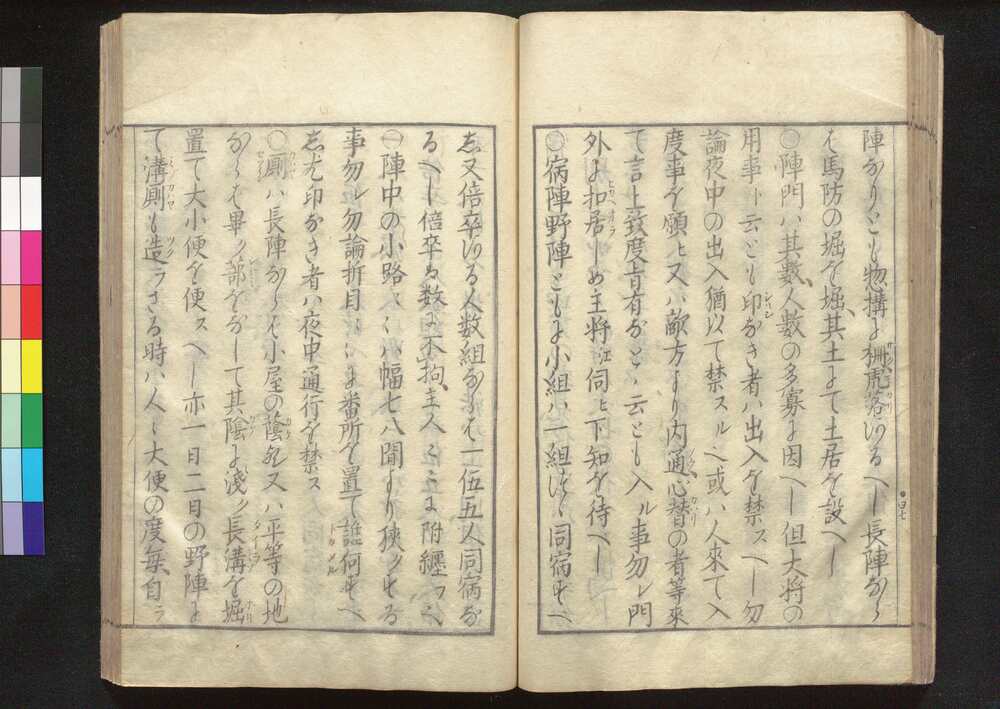 陣ありとも惣構に柵虎落ゆるへし長陣なら
ハ馬防の堀を堀、其土にて土居を設へし
〇陣門ハ其數人數の多寡に因へし但大将の
用事ト云とも印なき者ハ出入を禁スヘし勿
論夜中の出入猶以て禁スルヘ或ハ人来て入
度事を願ヒ又ハ敵方より内通心替の者等来
て言上致度旨有なとゝ云とも入ル事勿レ門
外に扣居しめ主将江伺ヒ下知を待へし
〇宿陣野陣ともに小組ハ一組つゝ同宿すへ
し又倍卒ある人数組なれは一伍五人同宿な
るへし倍卒ハ数に不拘、主人〳〵に附纏ふへし
〇陣中の小路〳〵ハ幅七八間より狭クする
事勿レ勿論折目〳〵に番所を置て誰何すへ
し尤印なき者ハ夜中通行を禁ス
〇厠ハ長陣ならは小屋の蔭亦又ハ平等の地
ならは畢ク部をなして其陰に淺ク長溝を堀
置て大小便を便スへし亦一日二日の野陣に
て溝厠も造ラさる時ハ人〻大便の度毎、自ラ
四七